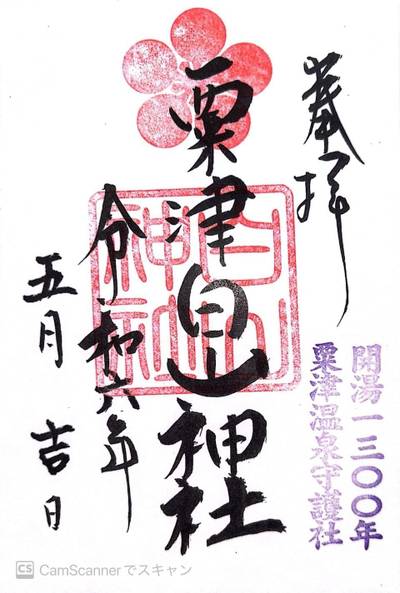 奉拝
開湯一三〇〇年
粟津温泉守護社
粟津白山神社
令和六年
五月 吉日
白山
神社
CS CamScannerでスキャン